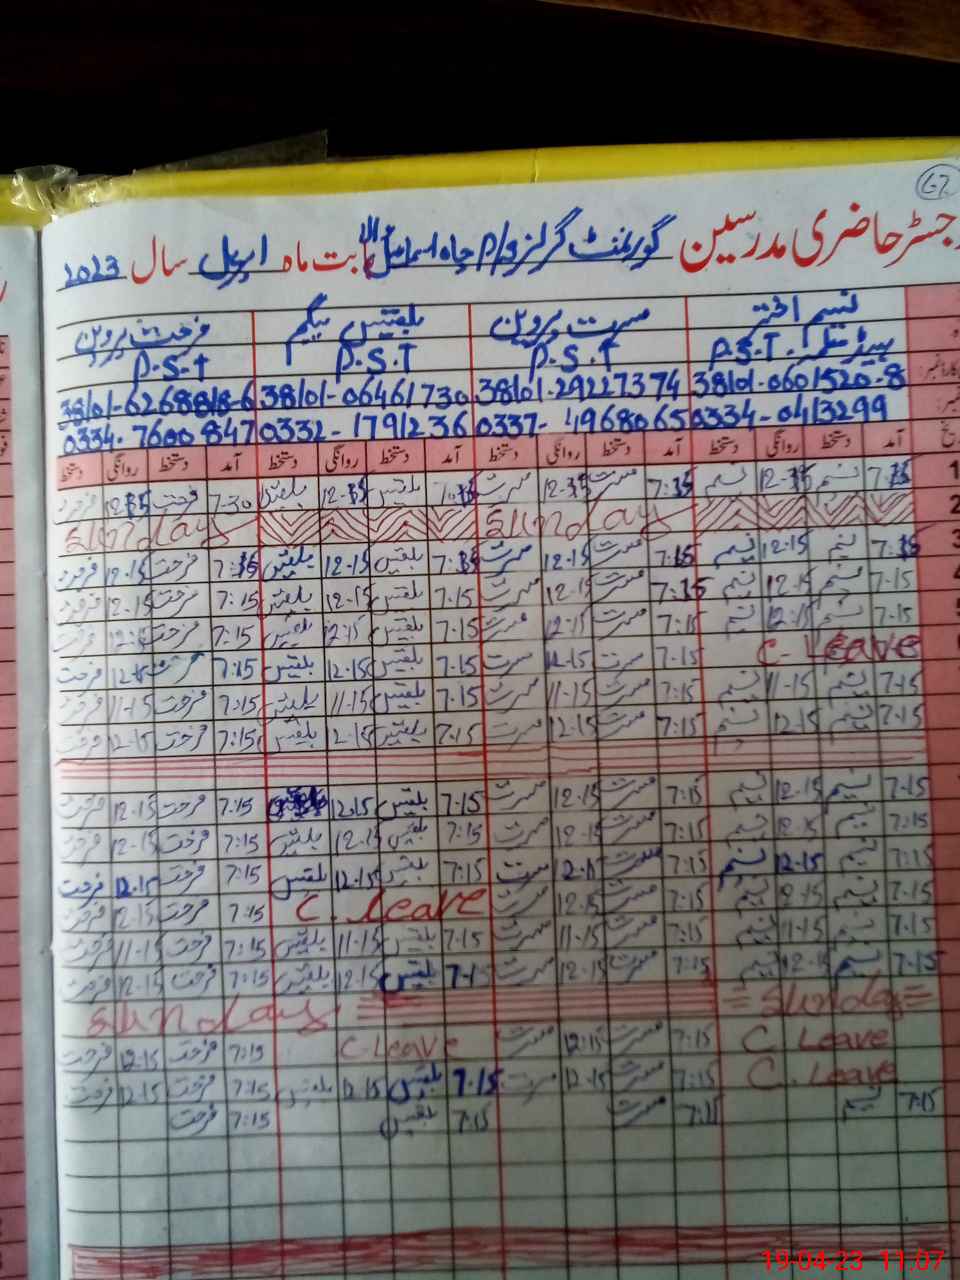 62
رجسٹر حاضری مدرسین گورنمنٹ گرلز پ/م چاہ اسماعیل والا بابت ماہ اپریل سال 2023
نسیم اختر مسرت پروین بلقیس بیگم فرحت پروین
P.S.T P.S.T P.S.T P.S.T
38101-0601520-8 38101-29227374 38101-06461730 38101-6268818-6
0334-0413299 0337-4968065 0332-1791236 0334-7600847
آمد دستخط روانگی دستخط آمد دستخط روانگی دستخط آمد دستخط روانگی دستخط آمد دستخط روانگی دستخط
1 نسیم نسیم 7:35 مسرت 12-35 مسرت بلقیس 12-35 بلقیس 7-30 فرحت 12-35 فرحت
2 Sunday Sunday
3 نسیم 12-15 نسیم 7:15 مسرت 12-15 مسرت 7:15 بلقیس 12-15 بلقیس 7:15 فرحت 12-15 فرحت
7-15 نسیم 12-15 نسیم 7:15 مسرت 12-15 مسرت 7.15 بلقیس 12-15 بلقیس 7:15 فرحت 12-15 فرحت
7-15 نسیم 12-15 نسیم 7:15 مسرت 12-15 مسرت 7.15 بلقیس 12-15 بلقیس 7:15 فرحت فرحت
C. Leave 7-15 مسرت 12-15 مسرت 7.15 بلقیس 12-15 بلقیس 7:15 12-15 فرحت
7-15 نسیم 11-15 نسیم 7:15 مسرت 11-15 مسرت 7.15 بلقیس 11-15 بلقیس 7:15 فرحت 11-15 فرحت
7-15 نسیم 12-15 نسیم 7:15 مسرت 12-15 مسرت 7:15 بلقیس 12-15 بلقیس 7:15 فرحت 12-15 فرحت
7-15 نسیم 12-15 نسیم 7:15 مسرت 12-15 مسرت 7.15 بلقیس 12.15 7:15 فرحت 12-15 فرحت
7:15 نسیم نسیم 7:15 مسرت 12-15 مسرت 7:15 بلقیس 12-15 بلقیس 7:15 فرحت 12-15 فرحت
7:15 نسیم 12-15 نسیم 7:15 مسرت مسرت 7:15 بلقیس 12-15 بلقیس 7:15 فرحت 12-15 فرحت
7-15 نسیم 12-15 نسیم 7:15 مسرت 12-15 مسرت C. Leave 7:15 فرحت 12-15 فرحت
7-15 نسیم 11-15 نسیم 7:15 مسرت 11-15 مسرت 7-15 بلقیس 11-15 بلقیس 7:15 فرحت 11-15 فرحت
7-15 نسیم 12-15 نسیم 7:15 مسرت 12-15 مسرت 7-15 بلقیس 12-15 بلقیس 7:15 فرحت 12-15 فرحت
Sunday Sunday
C. Leave 7:15 مسرت 12:15 مسرت C. Leave 7:15 فرحت 12-15 فرحت
C. Leave 7:15 مسرت 12-15 مسرت 7.15 بلقیس 12-15 بلقیس 7:15 فرحت 12-15 فرحت
7:15 نسیم 7:15 مسرت 7:15 بلقیس 7:15 فرحت
19-04-23 11:07